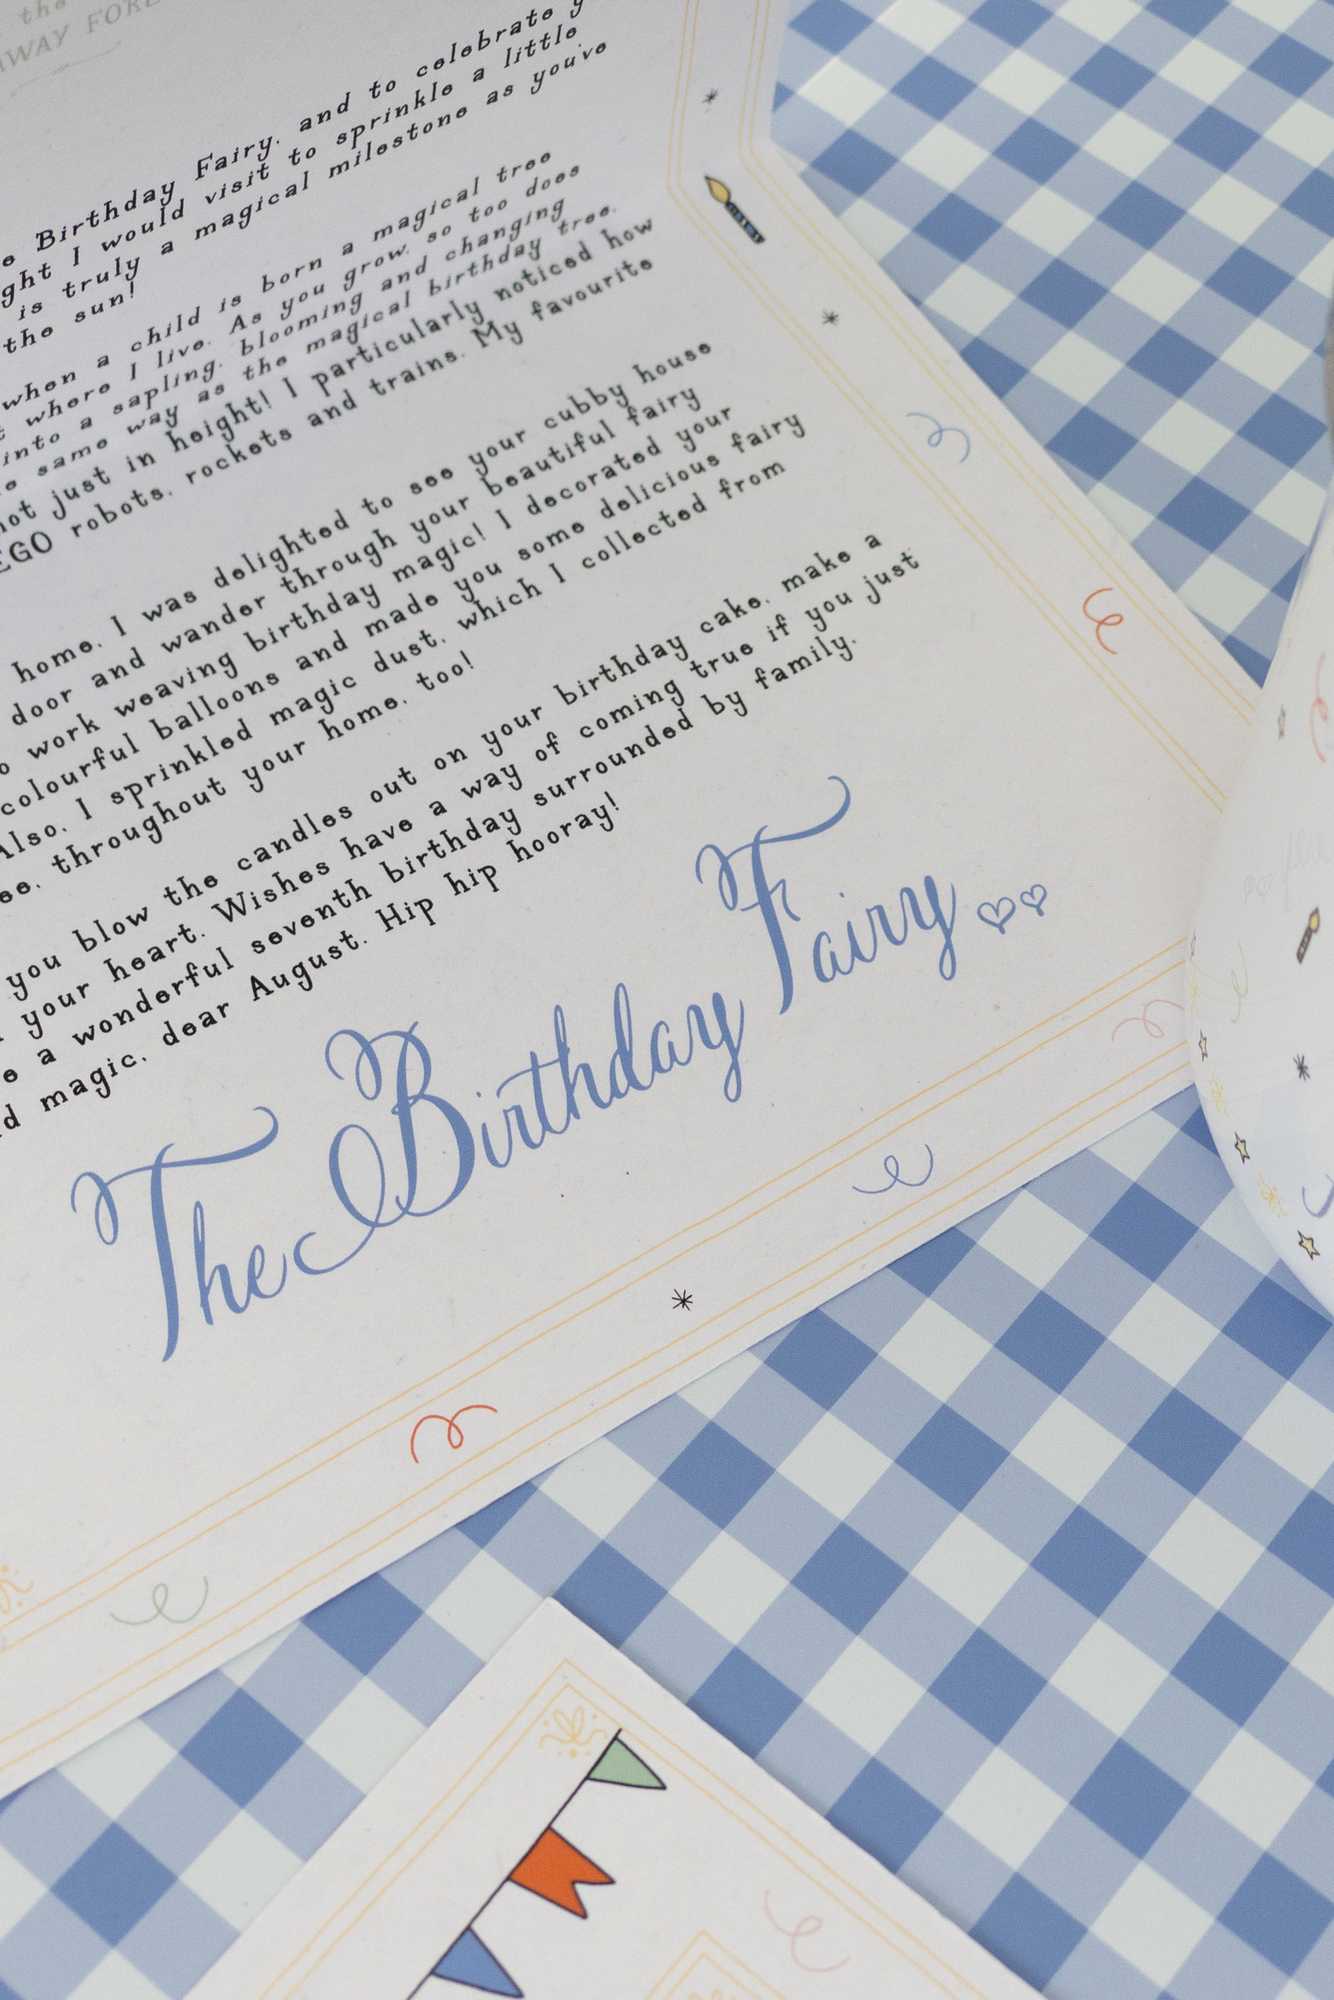 the
AWAY FORE
Birthday Fairy, and to celebrate
I would visit to sprinkle a little
is truly a magical milestone as you've
the sun!
when a child is born a magical tree
where I live. As you grow, so too does
into a sapling, blooming and changing
same way as the magical birthday tree.
not just in height! I particularly noticed how
EGO robots, rockets and trains. My favourite
home, I was delighted to see your cubby house
door and wander through your beautiful fairy
work weaving birthday magic! I decorated your
colourful balloons and made you some delicious fairy
Also, I sprinkled magic dust, which I collected from
throughout your home, too!
you blow the candles out on your birthday cake, make a
your heart. Wishes have a way of coming true if you just
a wonderful seventh birthday surrounded by family,
magic, dear August. Hip hip hooray!
The Birthday Fairy